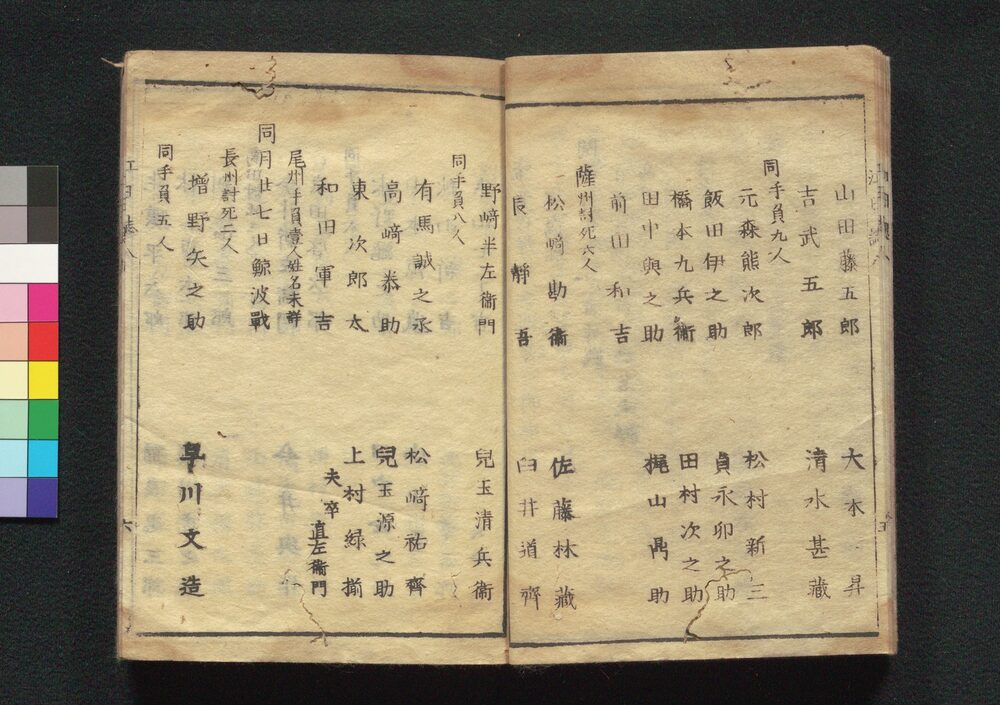 山田藤五郎　大本昇
吉武五郎　清水甚藏
同手負九人
元森熊次郎　松村新三
飯田伊之助　貞永卯之助
橋本九兵衞　田村次之助
田中與之助　梶山髙助
前田和吉
薩州討死六人
松﨑勘衞　佐藤林藏
長靜吾　臼井道齊
野﨑半左衞門　兒玉清兵衞
同手負八人
有馬誠之丞　松﨑祐齊
高﨑恭助　兒玉源之助
東次郎太　上村緑揃
和田軍吉　夫卒直左衞門
尾州手負壹人姓名未詳
同月廿七日鯨波戰
長州討死二人
增野矢之助　早川文造
同手負五人
六